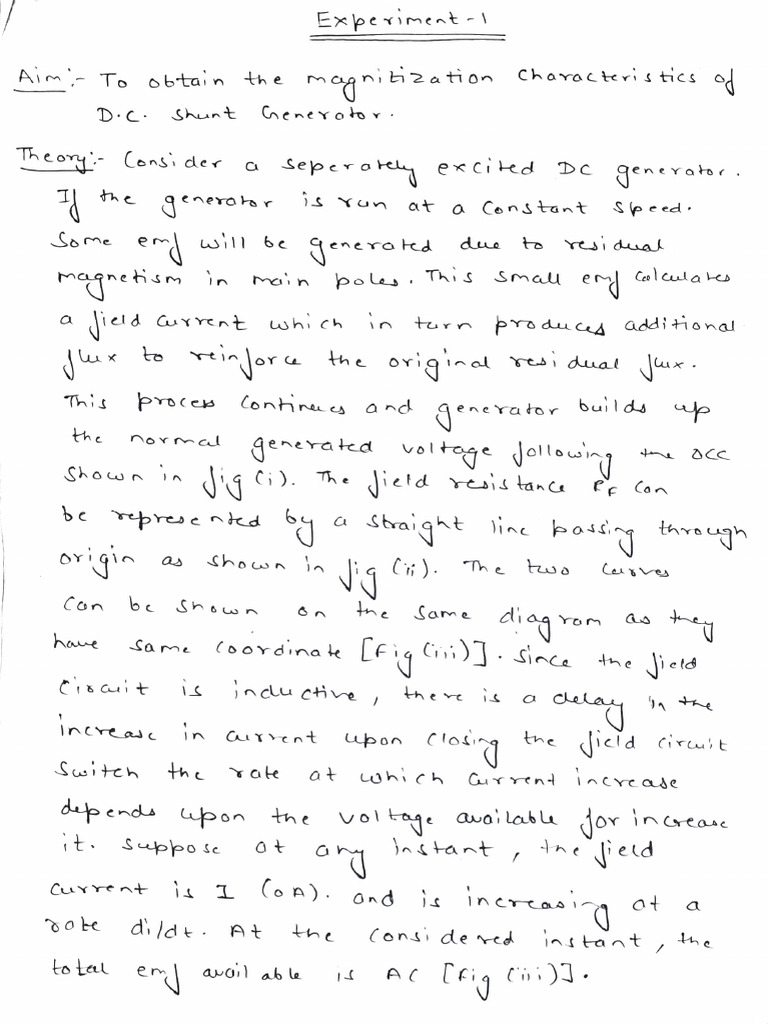 Experiment-1
Aim:- To obtain the magnitization characteristics of
D.C. shunt Generator.
Theory:- Consider a seperately excited DC generator.
If the generator is run at a constant speed.
Some emf will be generated due to residual
magnetism in main poles. This small emf calculates
a field current which in turn produces additional
flux to reinforce the original residual flux.
This process continues and generator builds up
the normal generated voltage following the OCC
shown in fig (i). The field resistance RF can
be represented by a straight line passing through
origin as shown in fig (ii). The two curves
can be shown on the same diagram as they
have same coordinate [Fig (iii)]. Since the field
circuit is inductive, there is a delay in the
increase in current upon closing the field circuit
switch the rate at which current increase
depends upon the voltage available for increase
it. suppose at any instant, the field
current is I (OA). and is increasing at a
rate di/dt. At the considered instant, the
total emf available is AC [Fig (iii)].